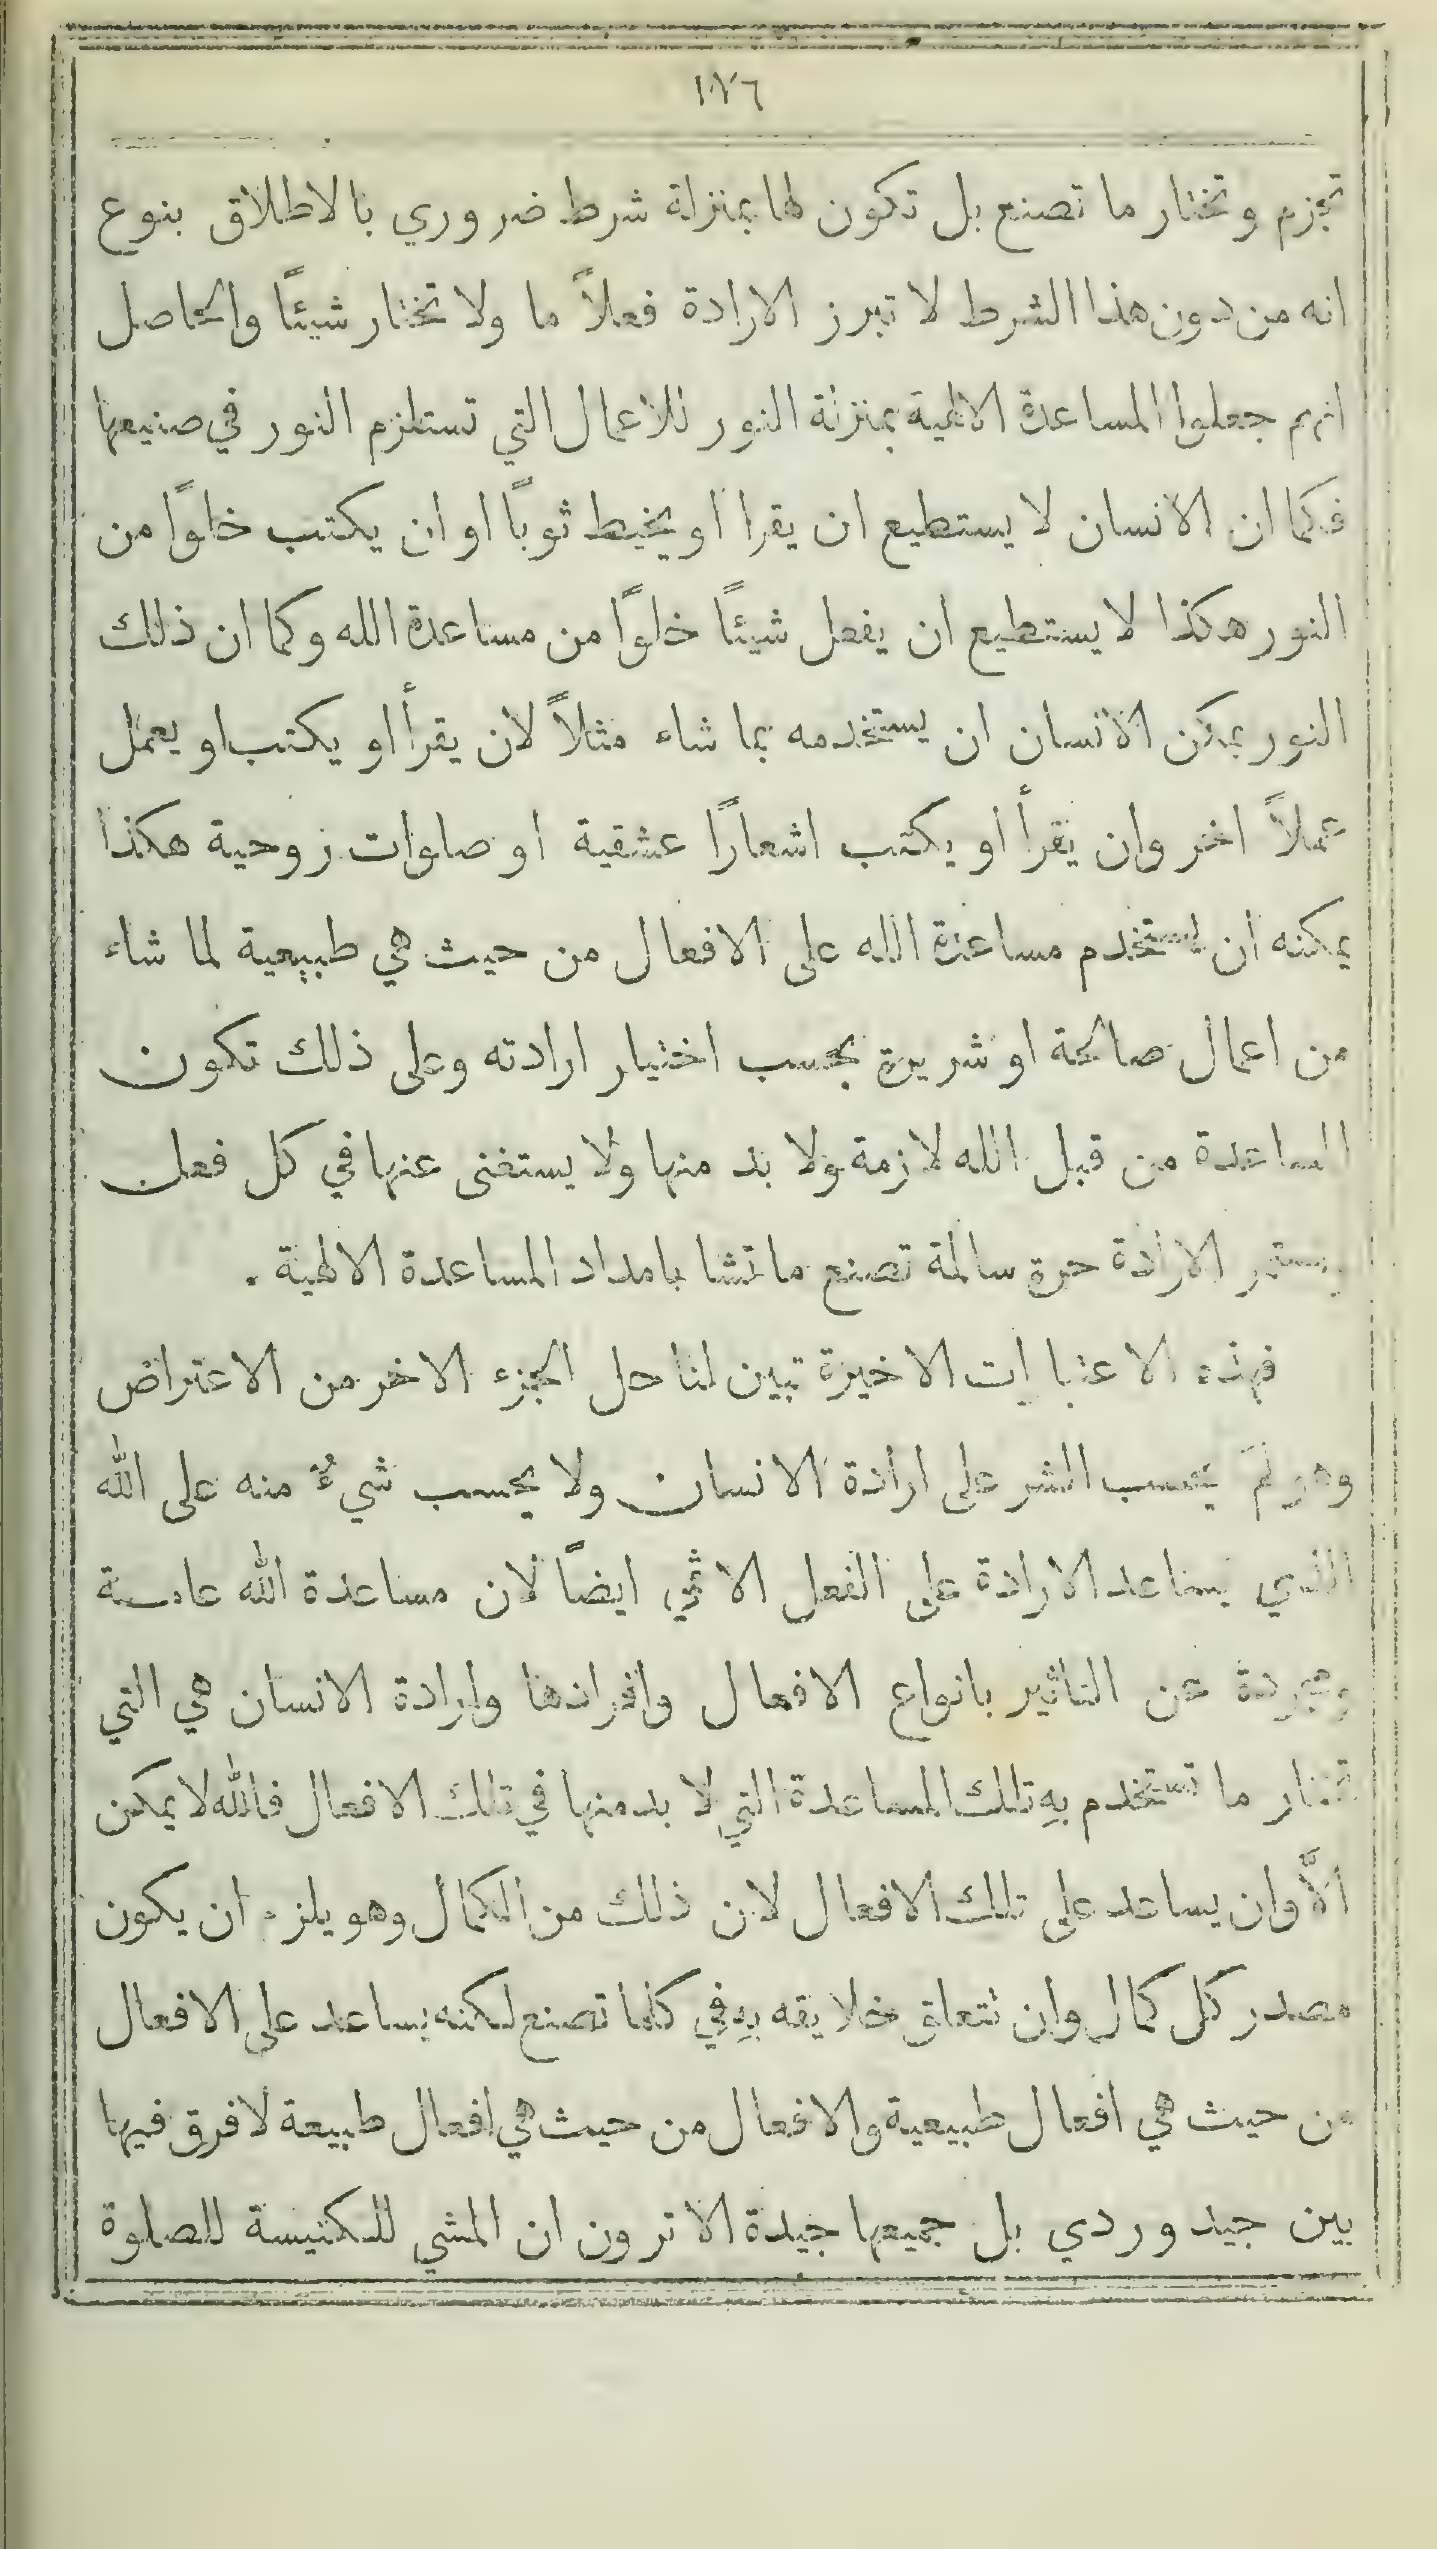 ١٧٦
تجزم وتختار ما تصنع بل تكون لها بمنزلة شرط ضروري بالاطلاق بنوع
انه من دون هذا الشرط لا تبرز الارادة فعلاً ما ولا تختار شيئًا والحاصل
انهم جعلوا المساعدة الالهية بمنزلة النور للاعمال التي تستلزم النور في صنيعها
فكما ان الانسان لا يستطيع ان يقرا او يخيط ثوبًا او ان يكتب خلوًا من
النور هكذا لا يستطيع ان يفعل شيئًا خلوًا من مساعدة الله وكما ان ذلك
النور يمكن الانسان ان يستخدمه بما شاء مثلاً لان يقرأ او يكتب او يعمل
عملاً اخر وان يقرأ او يكتب اشعارًا عشقية او صلوات روحية هكذا
يمكنه ان يستخدم مساعدة الله على الافعال من حيث هي طبيعية لما شاء
من اعمال صالحة او شريرة بحسب اختيار ارادته وعلى ذلك تكون
المساعدة من قبل الله لازمة ولا بد منها ولا يستغنى عنها في كل فعل
وتستمر الارادة حرة سالمة تصنع ما تشا بامداد المساعدة الالهية .
فهذه الاعتبارات الاخيرة تبين لنا حل الجزء الاخر من الاعتراض
وهو لمَ يحسب الشر على ارادة الانسان ولا يحسب شيءٌ منه على الله
الذي يساعد الارادة على الفعل الاثمي ايضًا لان مساعدة الله عامة
ومجردة عن التاثير بانواع الافعال وافرادها وارادة الانسان هي التي
تختار ما تستخدم بهِ تلك المساعدة التي لا بد منها في تلك الافعال فالله لا يمكن
الاَّ وان يساعد على تلك الافعال لان ذلك من الكمال وهو يلزم ان يكون
مصدر كل كمال وان تتعلق خلايقه بهِ في كلما تصنع لكنه يساعد على الافعال
من حيث هي افعال طبيعية والافعال من حيث هي افعال طبيعة لا فرق فيها
بين جيد وردي بل جميعها جيدة الا ترون ان المشي للكنيسة للصلوة